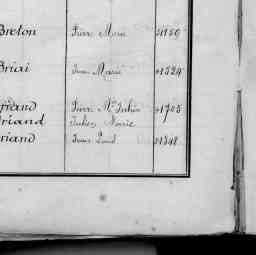 Breton Pierre Marie 1150
Briai Jean Marie 1324
Briand Pierre Mie Julien 1705
Briand Julien Marie
Briand Jean Louis 1348